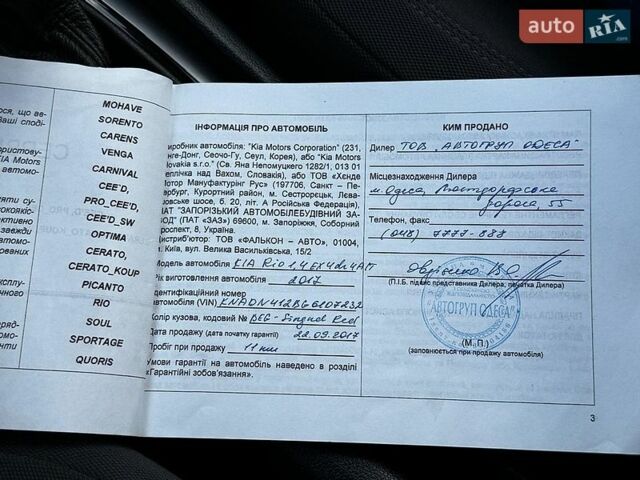 auto RIA.com
ося, що ав-
Ваші споді-
ристову-
IA Motors
автомо-
яти су-
окоякіс-
ктивно
завжди
ованих
сплу-
чного
ряд-
енти
MOHAVE
SORENTO
CARENS
VENGA
CARNIVAL
CEE`D,
PRO_CEE'D,
CEE'D_SW
OPTIMA
CERATO,
CERATO_KOUP
PICANTO
RIO
SOUL
SPORTAGE
QUORIS
ІНФОРМАЦІЯ ПРО АВТОМОБІЛЬ
виробник автомобіля: "Kia Motors Corporation" (231,
нге-Донг, Сеочо-Гу, Сеул, Корея), або "Kia Motors
Slovakia s.r.o." (Св. Яна Непомуцкого 1282/1, 013 01
Теплічка над Вахом, Словакія), або ТОВ «Хєнде
Мотор Мануфактурінг Рус» (197706, Санкт – Пе-
тербург, Курортний район, м. Сестрорецьк, Лєва-
шовське шосе, б. 20, літ. А Російська Федерація),
ПАТ "ЗАПОРІЗЬКИЙ АВТОМОБІЛЕБУДІВНИЙ ЗА-
ВОД" (ПАТ «ЗАЗ») 69600, м. Запоріжжя, Соборний
проспект, 8, Україна.
Дистриб'ютор: ТОВ «ФАЛЬКОН – АВТО», 01004,
м. Київ, вул. Велика Васильківська, 15/2
Модель автомобіля KIA Rio 1,4 EX 4dr 4AT
Рік виготовлення автомобіля 2017
Ідентифікаційний номер
автомобіля (VIN)
Колір кузова, кодовий № BEG - Signal Red
Дата продажу (дата початку гарантії) 22.09.2017
Пробіг при продажу 11 км
Умови гарантії на автомобіль наведено в розділі
«Гарантійні зобов'язання».
КИМ ПРОДАНО
Дилер ТОВ "АВТОГРУП ОДЕСА"
Місцезнаходження Дилера
м. Одеса,
дорога, 55
Телефон, факс
(048) 7777-888
(П.І.Б. підпис представника Дилера, печатка Дилера)
"АВТОГРУП ОДЕСА"
(М. П.)
(заповнюється при продажу автомобіля)
3